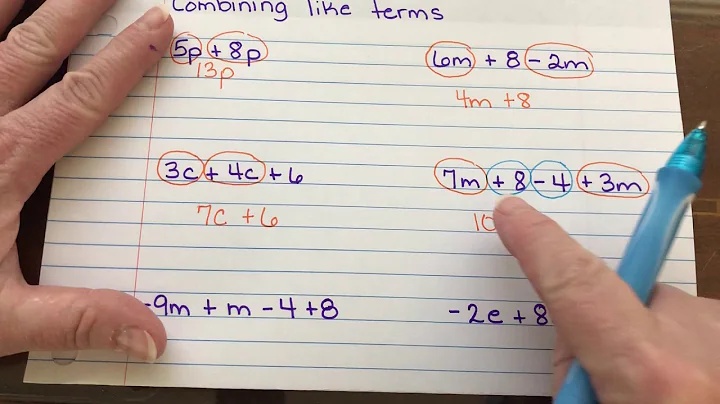 Combining like terms
5p + 8p
13p
6m + 8 - 2m
4m + 8
3c + 4c + 6
7c + 6
7m + 8 - 4 + 3m
10
-9m + m - 4 + 8
-2e + 8